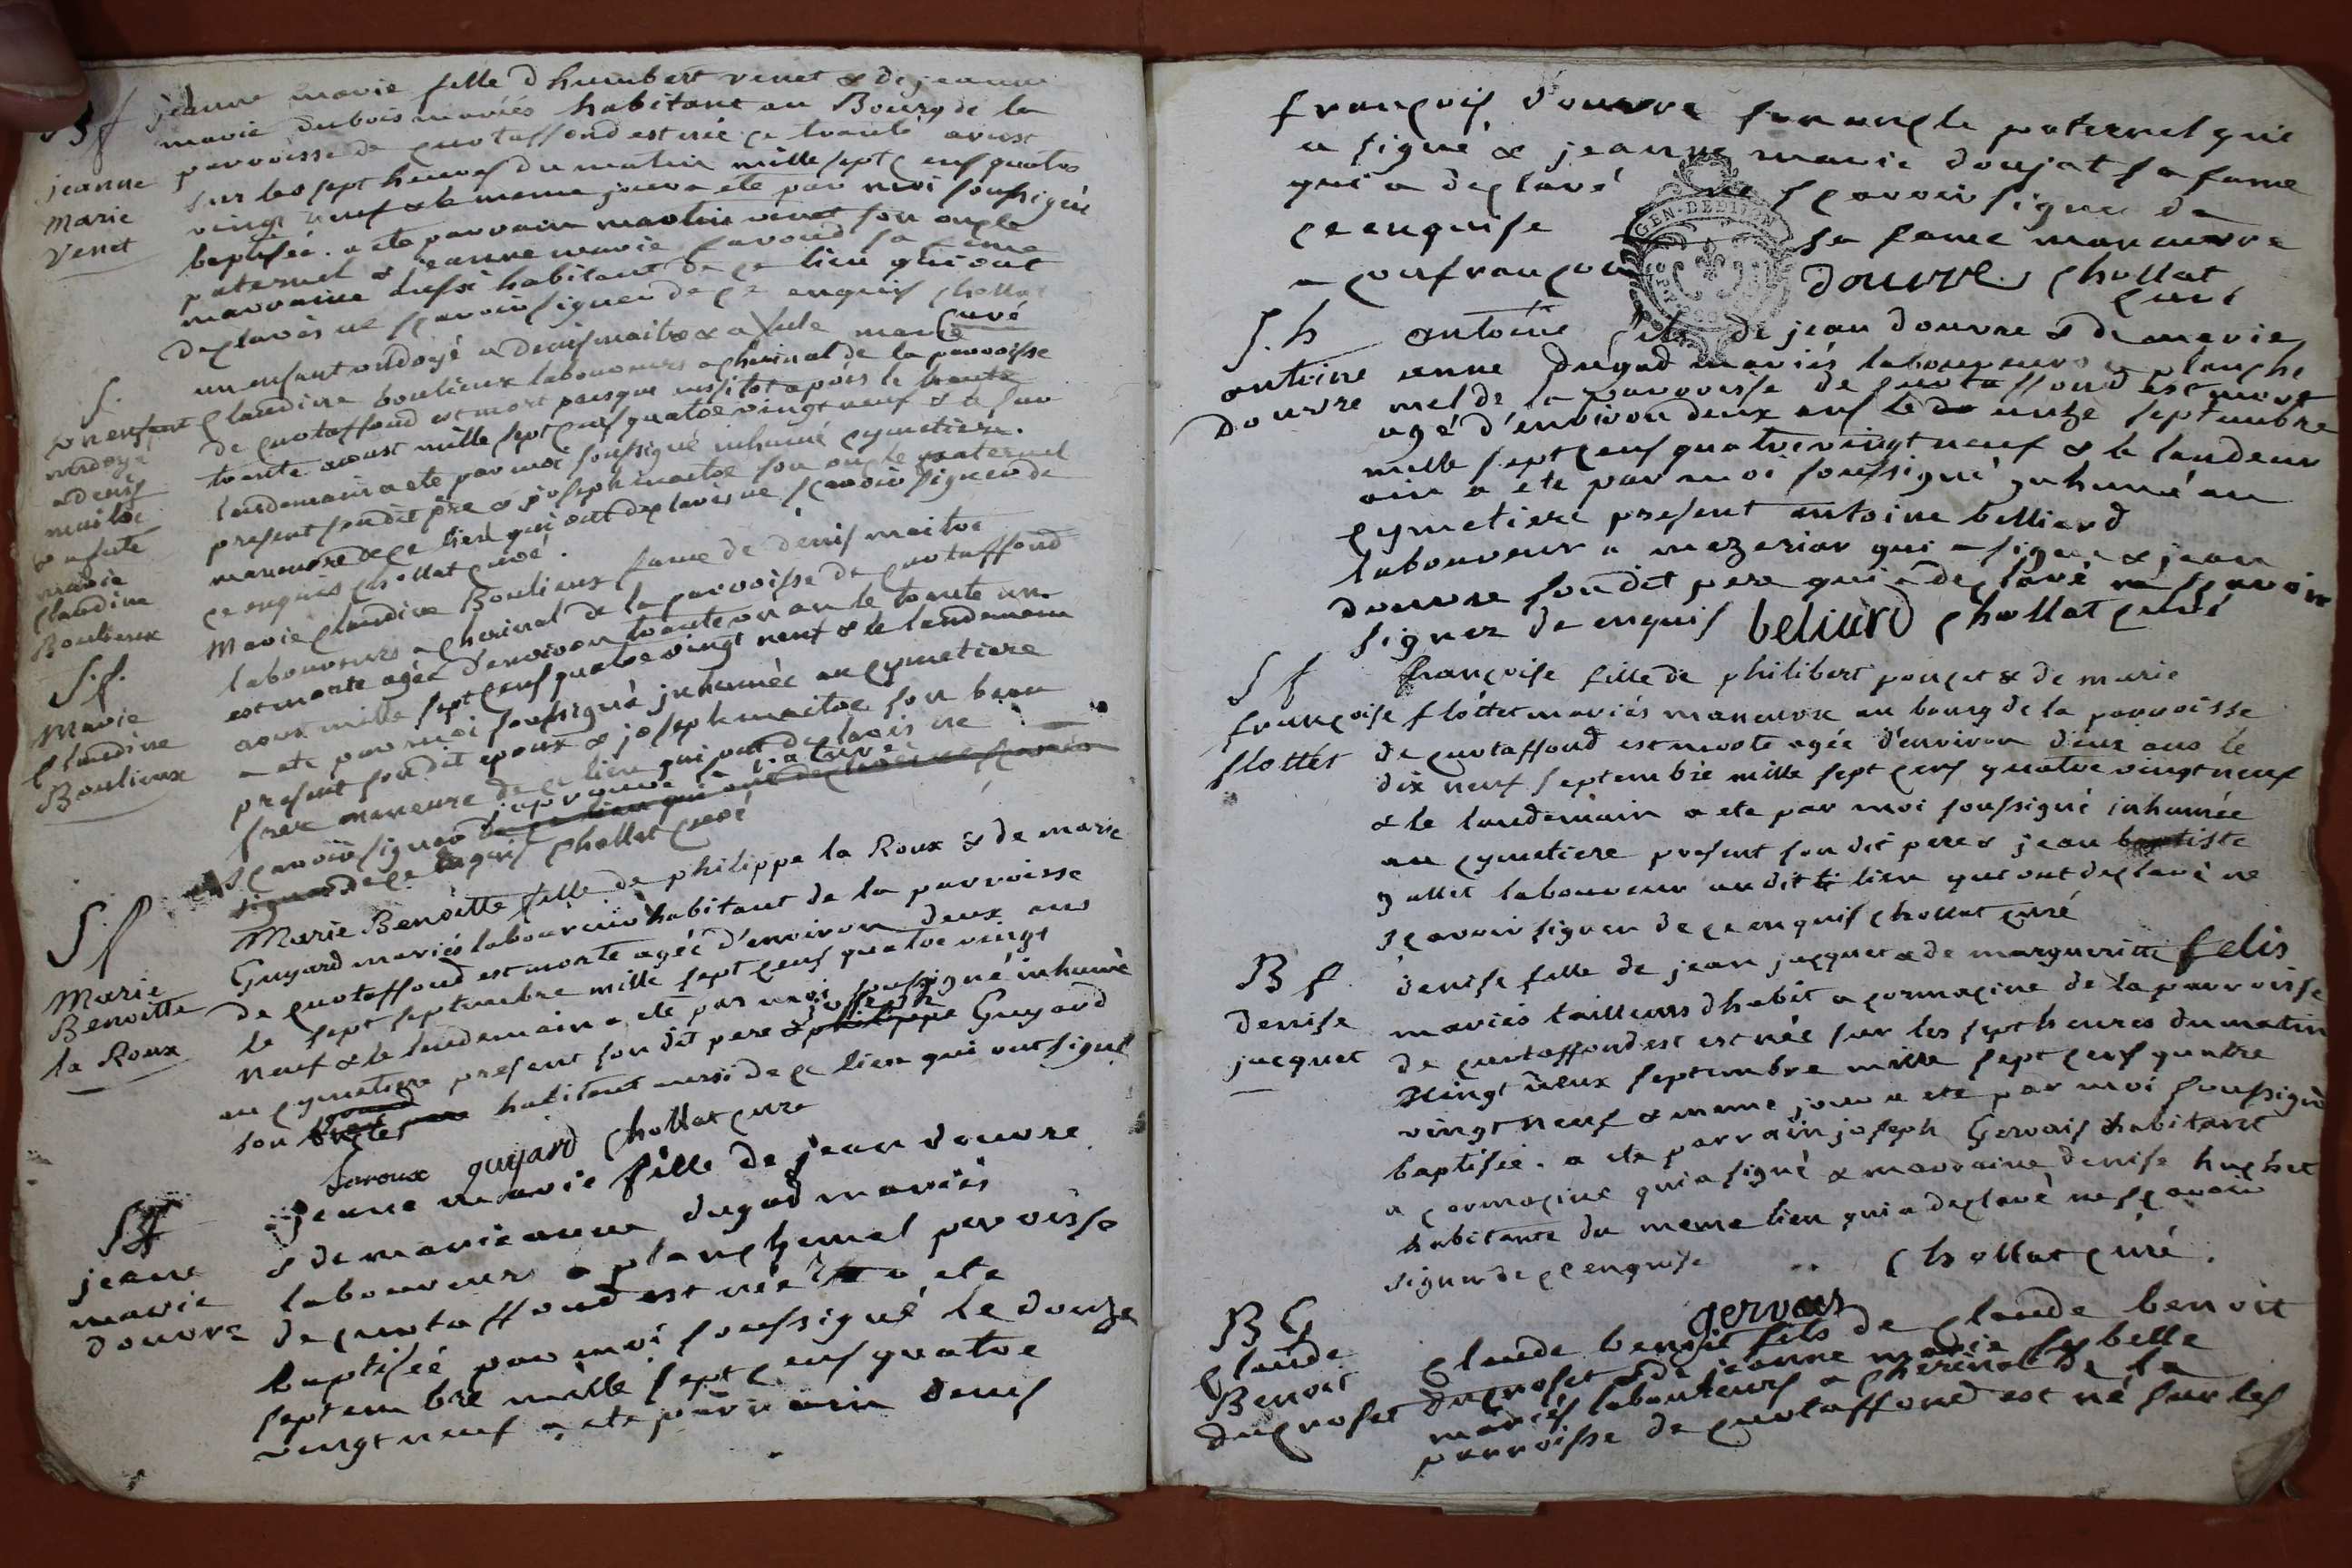 Bf
jeanne
Marie
Venet
jeanne marie fille d humbert venet & de jeanne
marie dubois mariés habitant au Bourg de la
parroisse de curtaffond est née ce trante aoust
sur les sept heures du matin mille sept cens quatre
vingt neuf & le meme jour a ete par moi soussigné
baptisée. a ete parrain martin venet son oncle
paternel & jeanne marie favoud sa fame
marraine aussi habitant de ce lieu qui ont
declarés ne scavoir signer de ce enquis chollat
curé
S.
un enfant
ondoyé
a denis
maitre
& a fute
marie
claudine
Boulieux
un enfant ondoyé a denis maitre & a fute marie
claudine boulieux laboureurs a cherinal de la parroisse
de curtaffond est mort presque ausitot apres le trante
trante aoust mille sept cens quatre vingt neuf & le
lendemain a ete par moi soussigné inhumé cymetiere.
present son dit pere & joseph maitre son oncle paternel
maneuvre de ce lieu qui ont declarés ne scavoir signer de
ce enquis chollat curé.
S.f.
Marie
claudine
Boulieux
Marie claudine Boulieux fame de denis maitre
laboureurs a cherinal de la parroisse de curtaffond
est morte agée d'environ trante un an le trante un
aoux mille sept cens quatre vingt neuf & le landemain
a ete par moi soussigné inhumée au cymetiere
present son dit epoux & joseph maitre son beau
frere maneuvre de ce lieu qui ont declarés ne
scavoir signer
signer de ce enquis chollat curé
S.f
Marie
Benoitte
la Roux
Marie Benoitte fille de philippe la Roux & de marie
Guyard mariés laboureurs habitant de la parroisse
de curtaffond est morte agée d'environ deux ans
le sept septembre mille sept cens quatre vingt
neuf & le lendemain a ete par moi soussigné inhumée
au cymetiere present son dit pere & joseph philippe Guyard
son habitant aussi de ce lieu qui ont signé
Laroux guyard chollat curé
Bf
jeane
marie
douvre
jeane marie fille de jean douvre
& de marie anne dugad mariés
laboureurs a planchemel parroisse
de curtaffond est née & a ete
baptisée par moi soussigné le douze
septembre mille sept cens quatre
vingt neuf a ete parrain denis
françois douvre son oncle paternel qui
a signé & jeanne marie doujat sa fame
qui a declaré ne scavoir signer de
ce enquise sa fame maraine
a
douvre chollat
curé
S.h
antoine
Douvre
antoine fils de jean douvre & de marie
anne dugad mariés laboureurs a planche
mel de la parroisse de curtaffond est mort
agé d'environ deux ans le unze septembre
mille sept cens quatre vingt neuf & le landem
ain a ete par moi soussigné inhumé au
cymetiere present antoine belliard
laboureur a mezeriar qui a signé & jean
douvre son dit pere qui a declaré ne scavoir
signer de enquis beliard chollat curé
S f
françoise
flottet
françoise fille de philibert poncet & de marie
flottet mariés maneuvre au bourg de la parroisse
de curtaffond est morte agée d'environ deux ans le
dix neuf septembre mille sept cens quatre vingt neuf
& le landemain a ete par moi soussigné inhumée
au cymetiere present son dit pere & jean baptiste
gallet laboureur au dit lieu qui ont declaré ne
scavoir signer de ce enquis chollat curé
B f.
denise
jacquet
denise fille de jean jacquet & de margueritte felis
mariés tailleurs d habit a cormacine de la parroisse
de curtaffond est est née sur les sept heures du matin
vingt deux septembre mille sept cens quatre
vingt neuf & meme jour a ete par moi soussigné
baptisée. a ete parrain joseph Gervais habitant
a cormacine qui a signé & marraine denise huchet
habitante du meme lieu qui a declaré ne scavoir
signer de ce enquise chollat curé.
gervais
B G
Claude
Benoit
ducroset
Claude benoit fils de claude benoit
ducroset & de jeanne marie sybelle
mariés laboureurs a cherinal de la
parroisse de curtaffond est né sur les